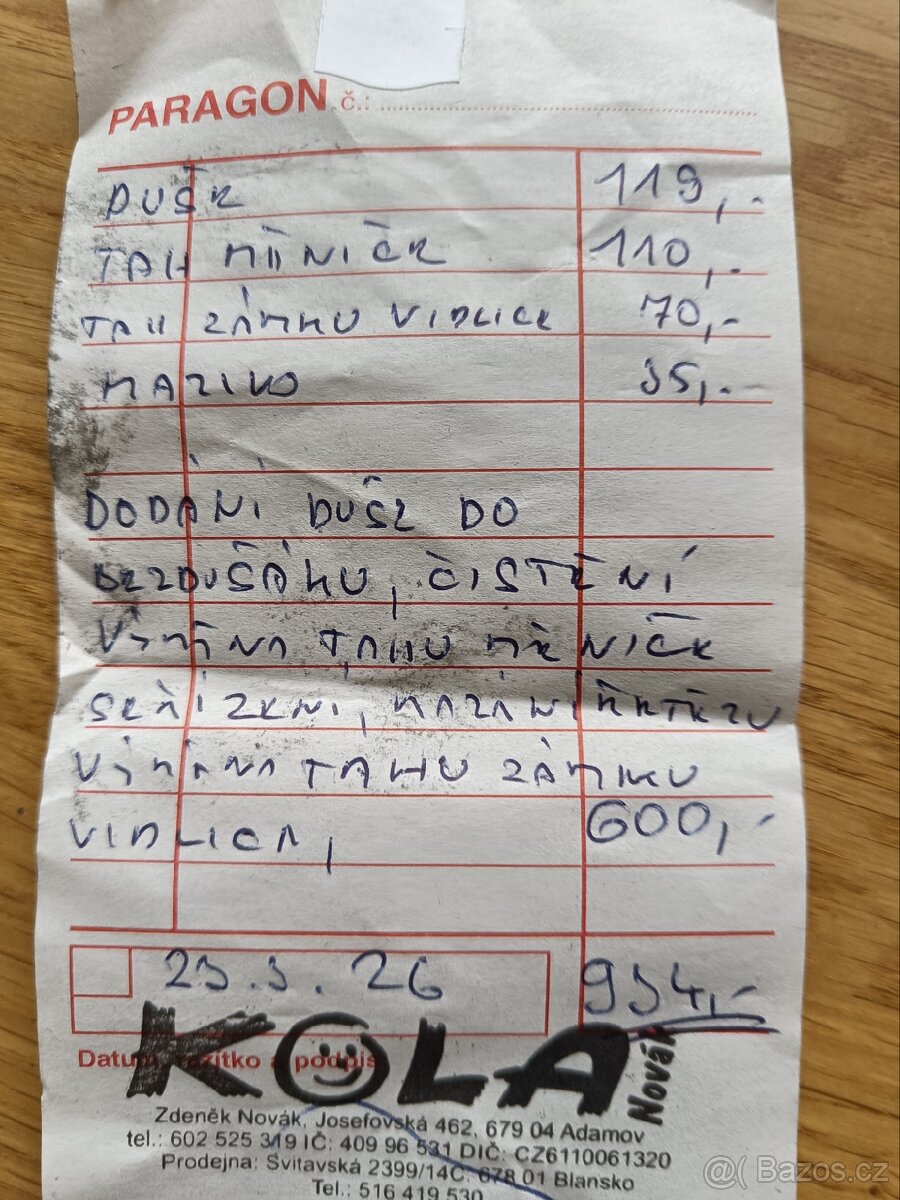 PARAGON č.:
DUŠE 119,-
TAH MĚNIČE 110,-
TAH ZÁMKU VIDLICE 70,-
MAZIVO 35,-
DODÁNÍ DUŠE DO
BEZDUŠÁKU, ČISTĚNÍ
VÝMĚNA TAHU MĚNIČE
SEŘÍZENÍ, MAZÁNÍ ŘETĚZU
VÝMĚNA TAHU ZÁMKU
VIDLICE, 600,-
23.3.26 934,-
Datum, razítko a podpis
KOLA Novák
Zdeněk Novák, Josefovská 462, 679 04 Adamov
tel.: 602 525 319 IČ: 409 96 531 DIČ: CZ6110061320
Prodejna: Svitavská 2399/14C, 678 01 Blansko
Tel.: 516 419 530
@( Bazos.cz